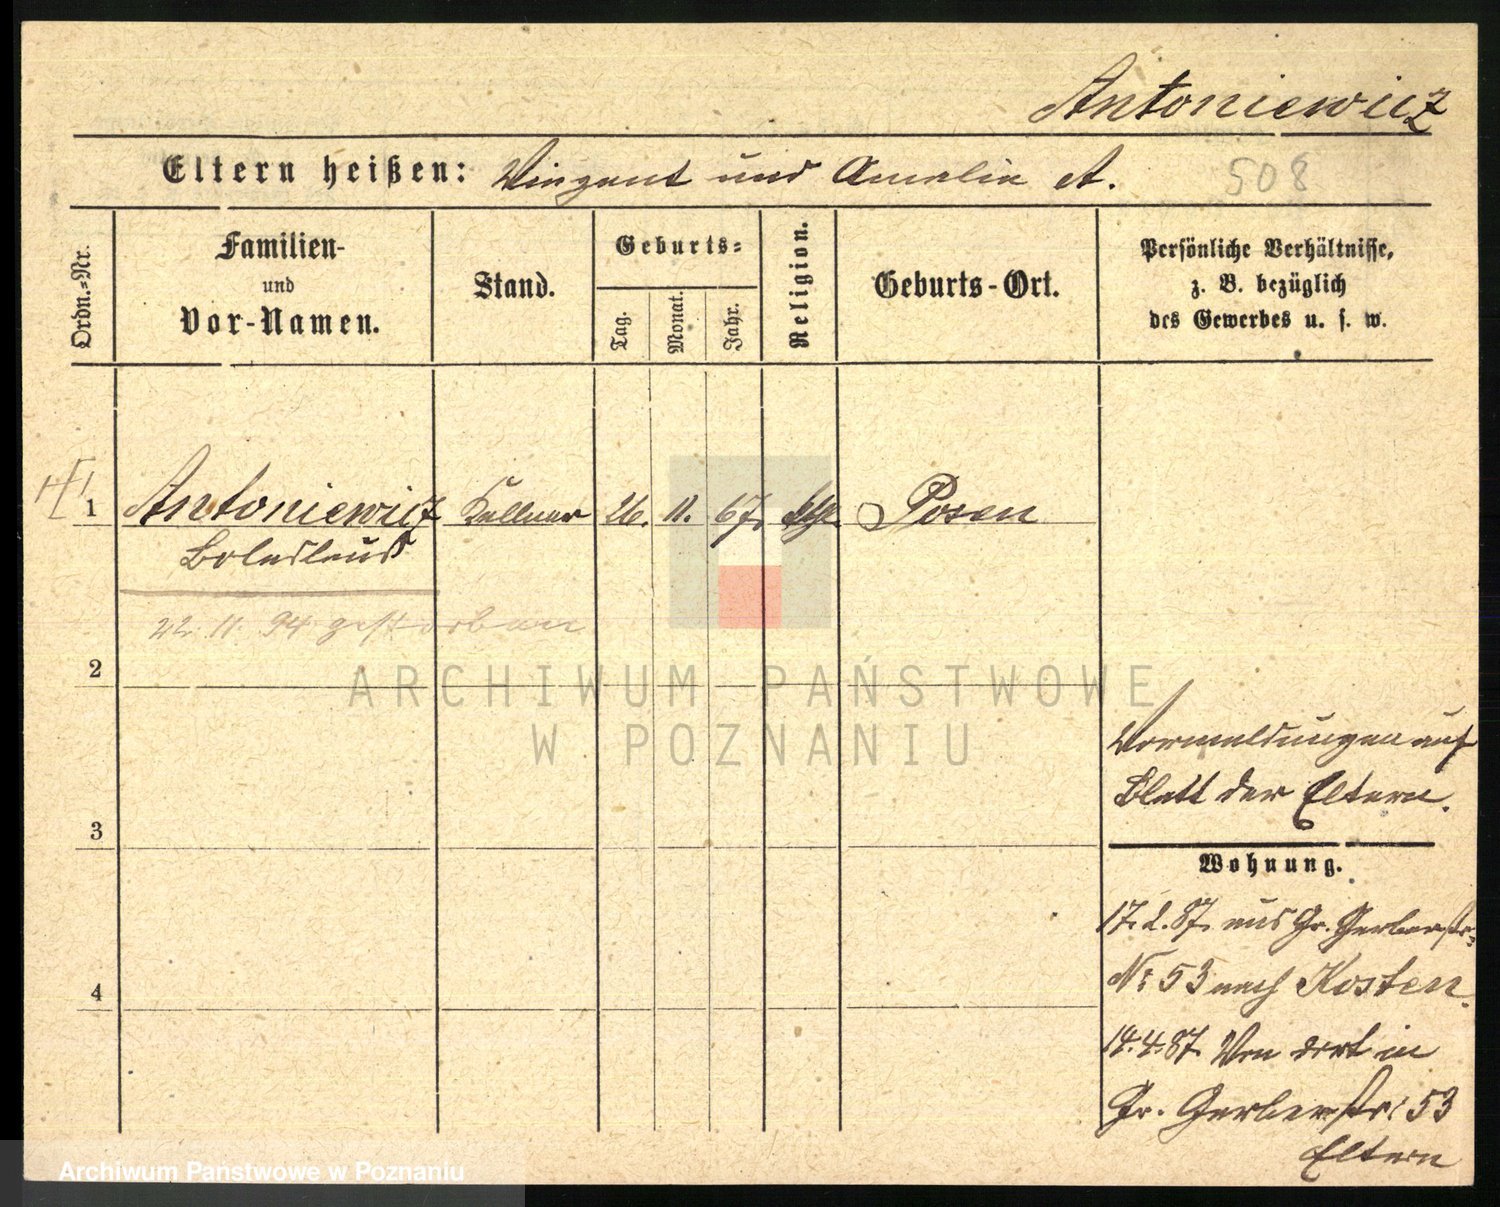 Antoniewicz
Eltern heißen: Vinzent und Amalie A. 508
Ordn.=Nr.
Familien-
und
Vor-Namen.
Stand.
Geburts=
Tag.
Monat.
Jahr.
Religion.
Geburts-Ort.
Persönliche Verhältnisse,
z. B. bezüglich
des Gewerbes u. s. w.
1 Antoniewicz Kellner 26. 11. 67. kth Posen
Boleslaus
22. 11. 94 gestorben
2
ARCHIWUM PAŃSTWOWE
W POZNANIU
Vormeldungen auf
Blatt der Eltern.
3
Wohnung.
17.2.87. aus Gr. Gerberstr.
No 53 nach Kosten.
4
14.4.87. Von dort in
Gr. Gerberstr: 53
Eltern
Archiwum Państwowe w Poznaniu